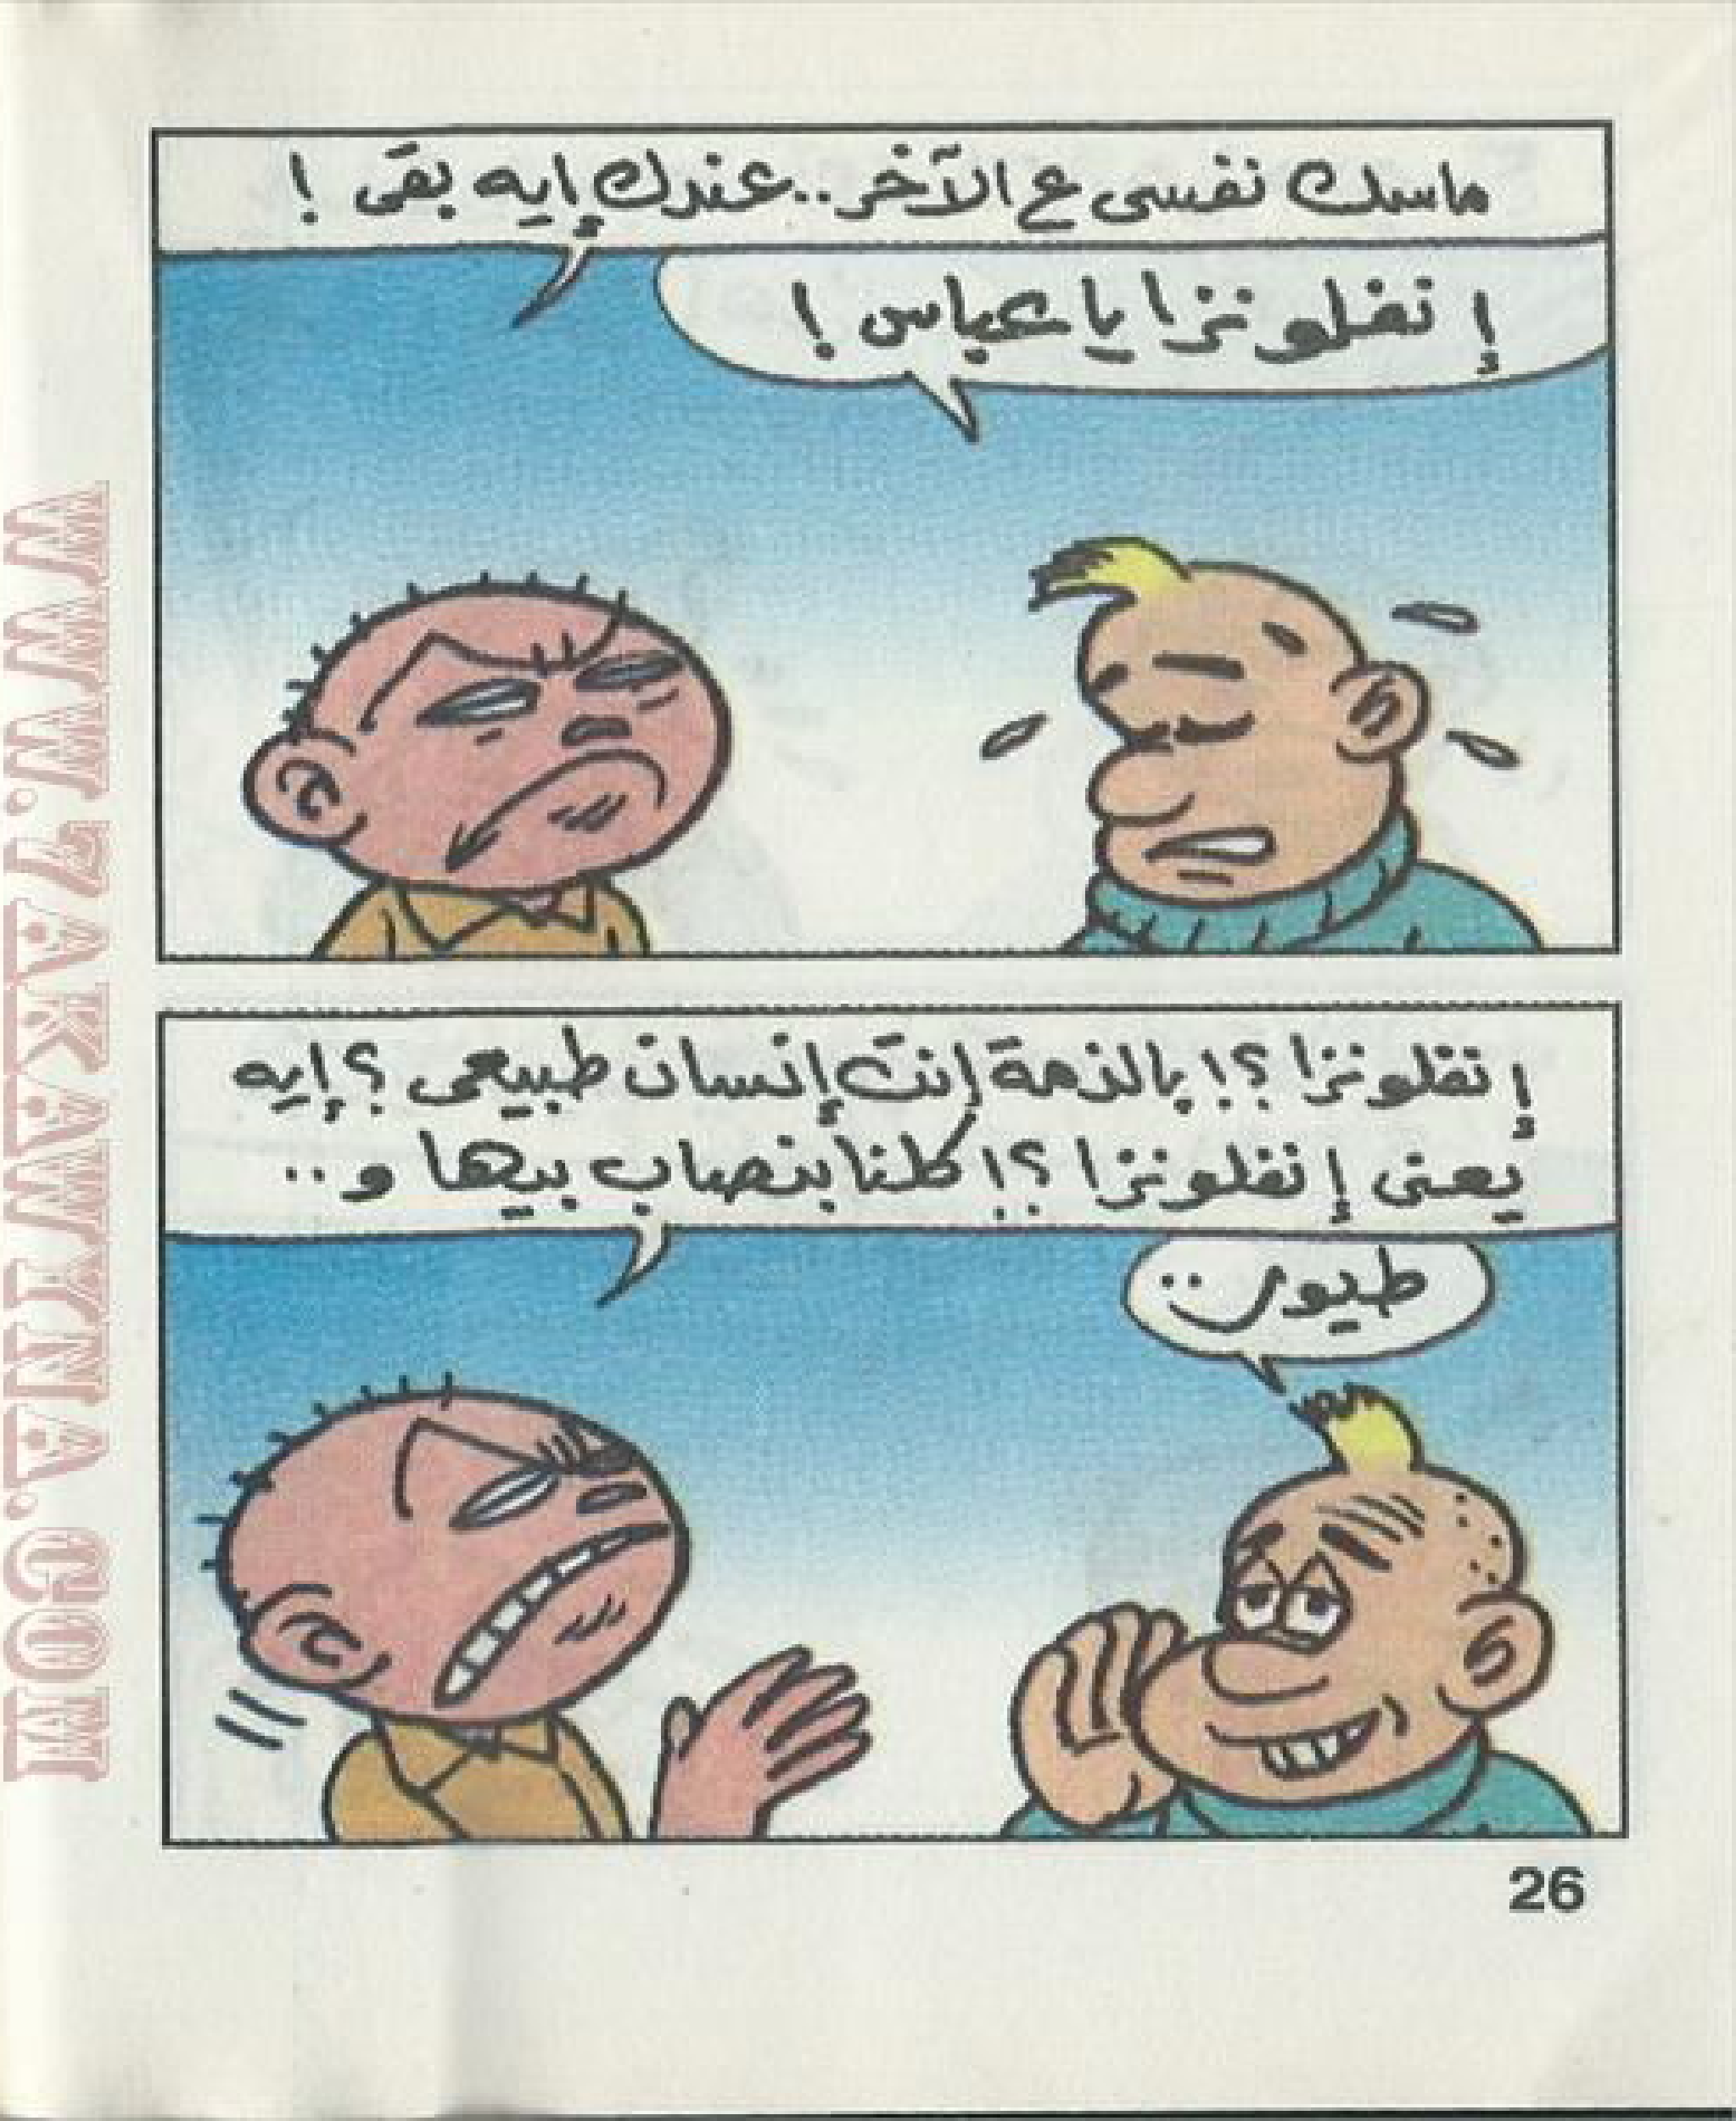 ماسك نفسى ع الآخر..عندك إيه بقى !
إنفلونزا يا عباس !
إنفلونزا ؟! بالذمة إنت إنسان طبيعى ؟ إيه
يعنى إنفلونزا ؟! كلنا بنصاب بيها و..
طيور..
26
WWW.7AKAWINA.COM